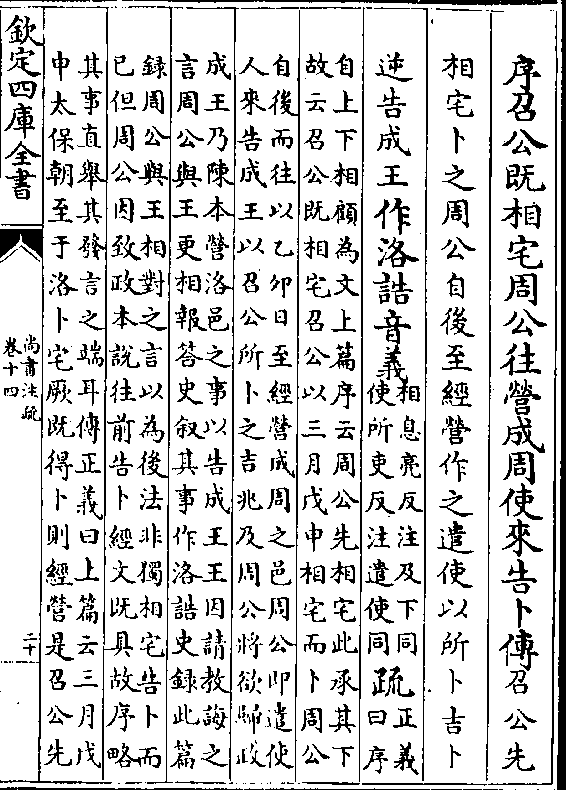 序召公既相宅周公往營成周使來告卜傳召公先
相宅卜之周公自後至經營作之遣使以所卜吉卜
逆告成王作洛誥音義
相息亮反注及下同
使所吏反注遣使同
疏
正義
曰序
自上下相顧為文上篇序云周公先相宅此承其下
故云召公既相宅召公以三月戊申相宅而卜周公
自後而往以乙卯日至經營成周之邑周公即遣使
人來告成王以召公所卜之吉兆及周公將欲歸政
成王乃陳本營洛邑之事以告成王王因請教誨之
言周公與王更相報答史叙其事作洛誥史録此篇
録周公與王相對之言以為後法非獨相宅告卜而
已但周公因致政本說往前告卜經文既具故序略
其事直舉其發言之端耳傳正義曰上篇云三月戊
申太保朝至于洛卜宅厥既得卜則經營是召公先
欽定四庫全書
尚書注疏
卷十四
二十